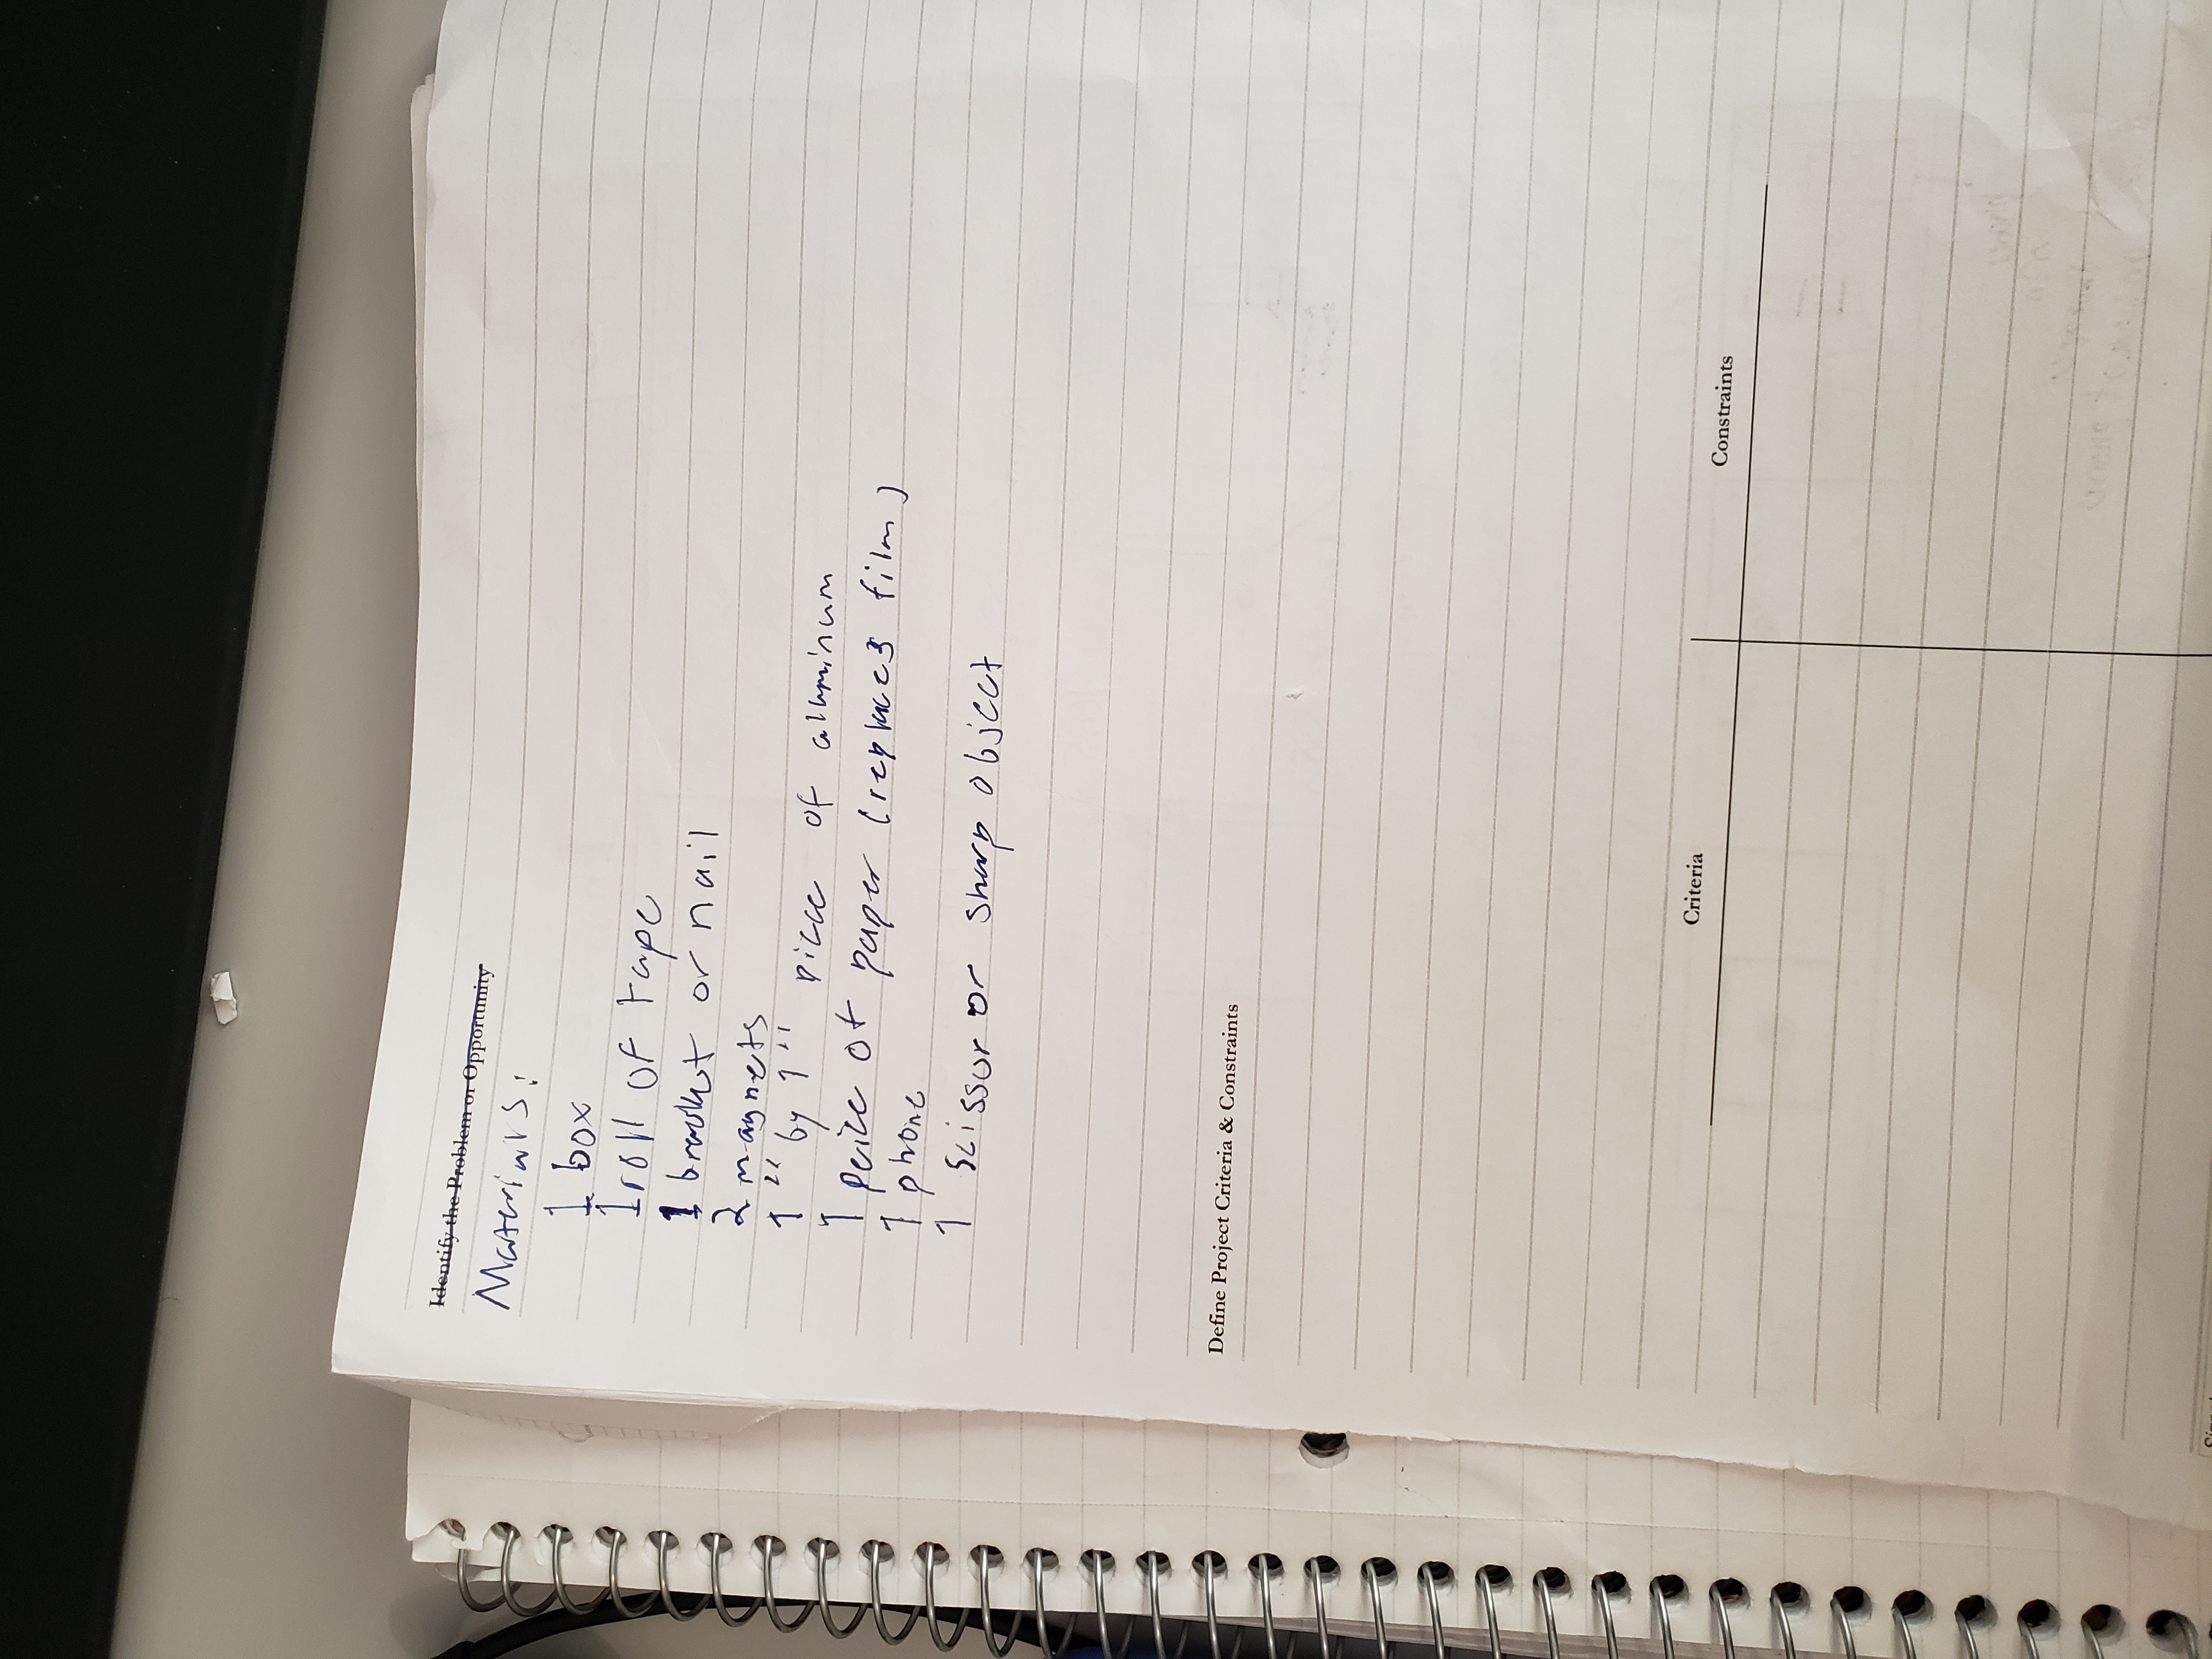 Identify the Problem or Opportunity
Materials:
1 box
1 roll of tape
1 bracket or nail
2 magnets
1" by 1" piece of aluminum
1 peice of paper (replaces film)
1 phone
1 scissor or sharp object
Define Project Criteria & Constraints
Criteria
Constraints